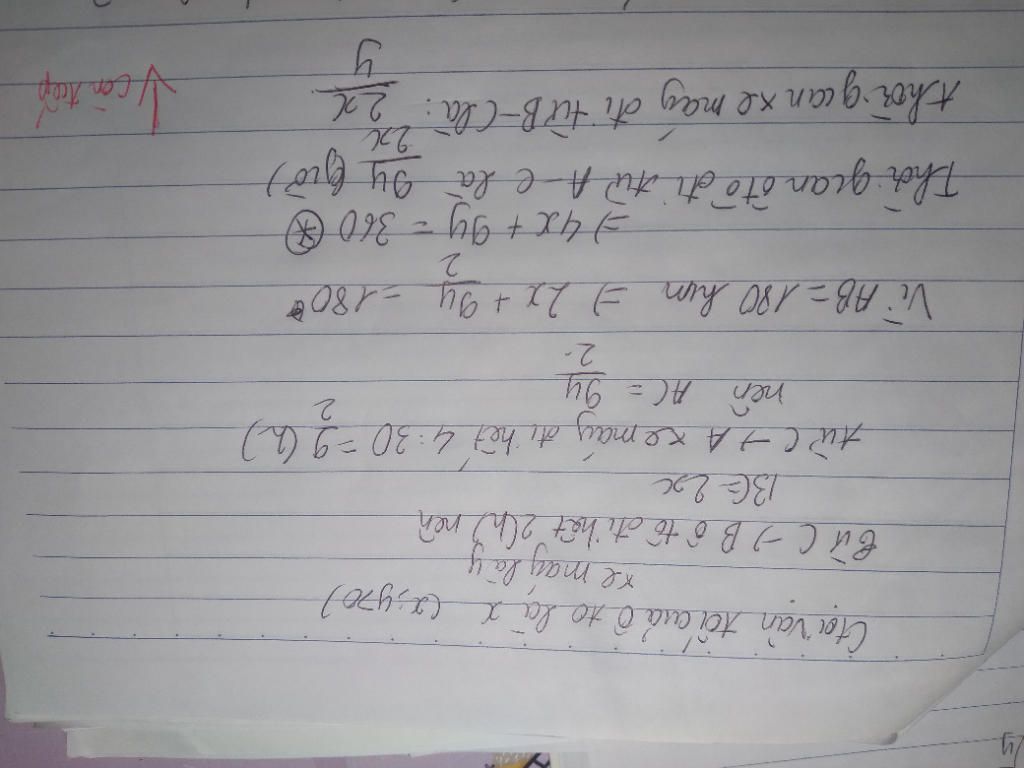 Gọi vận tốc của ô tô là x (x;y>0)
xe máy là y
Từ C → B ô tô đi hết 2(h) nên
BC = 2x
từ C → A xe máy đi hết 4:30 = 9/2 (h)
nên AC = 9y/2
Vì AB = 180 km ⇒ 2x + 9y/2 = 180
⇒ 4x + 9y = 360 (*)
Thời gian ôtô đi từ A-C là 9y/2x (giờ)
thời gian xe máy đi từ B-C là: 2x/y
↓ còn tiếp